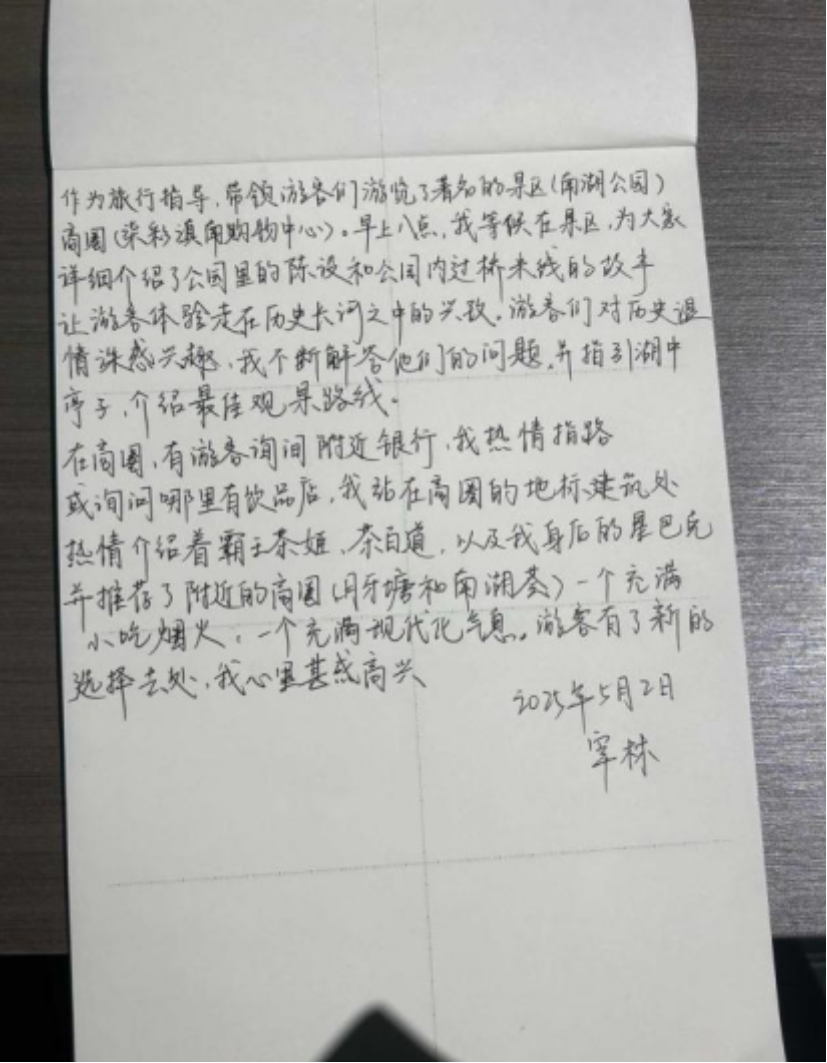 作为旅行指导，带领游客们游览了著名的景区（南湖公园）
商圈（柒彩滇南购物中心）。早上八点，我等候在景区，为大家
详细介绍了公园里的陈设和公园内过桥米线的故事
让游客体验走在历史长河之中的兴致，游客们对历史温
情诛感兴趣，我不断解答他们的问题，并指引湖中
亭子，介绍最佳观景路线。
在商圈，有游客询问附近银行，我热情指路
或询问哪里有饮品店，我站在商圈的地标建筑处
热情介绍着霸王茶姬、茶百道，以及我身后的星巴克
并推荐了附近的商圈（月牙塘和南湖荟）一个充满
小吃烟火，一个充满现代化气息。游客有了新的
选择去处，我心里甚感高兴
2025年5月2日
林